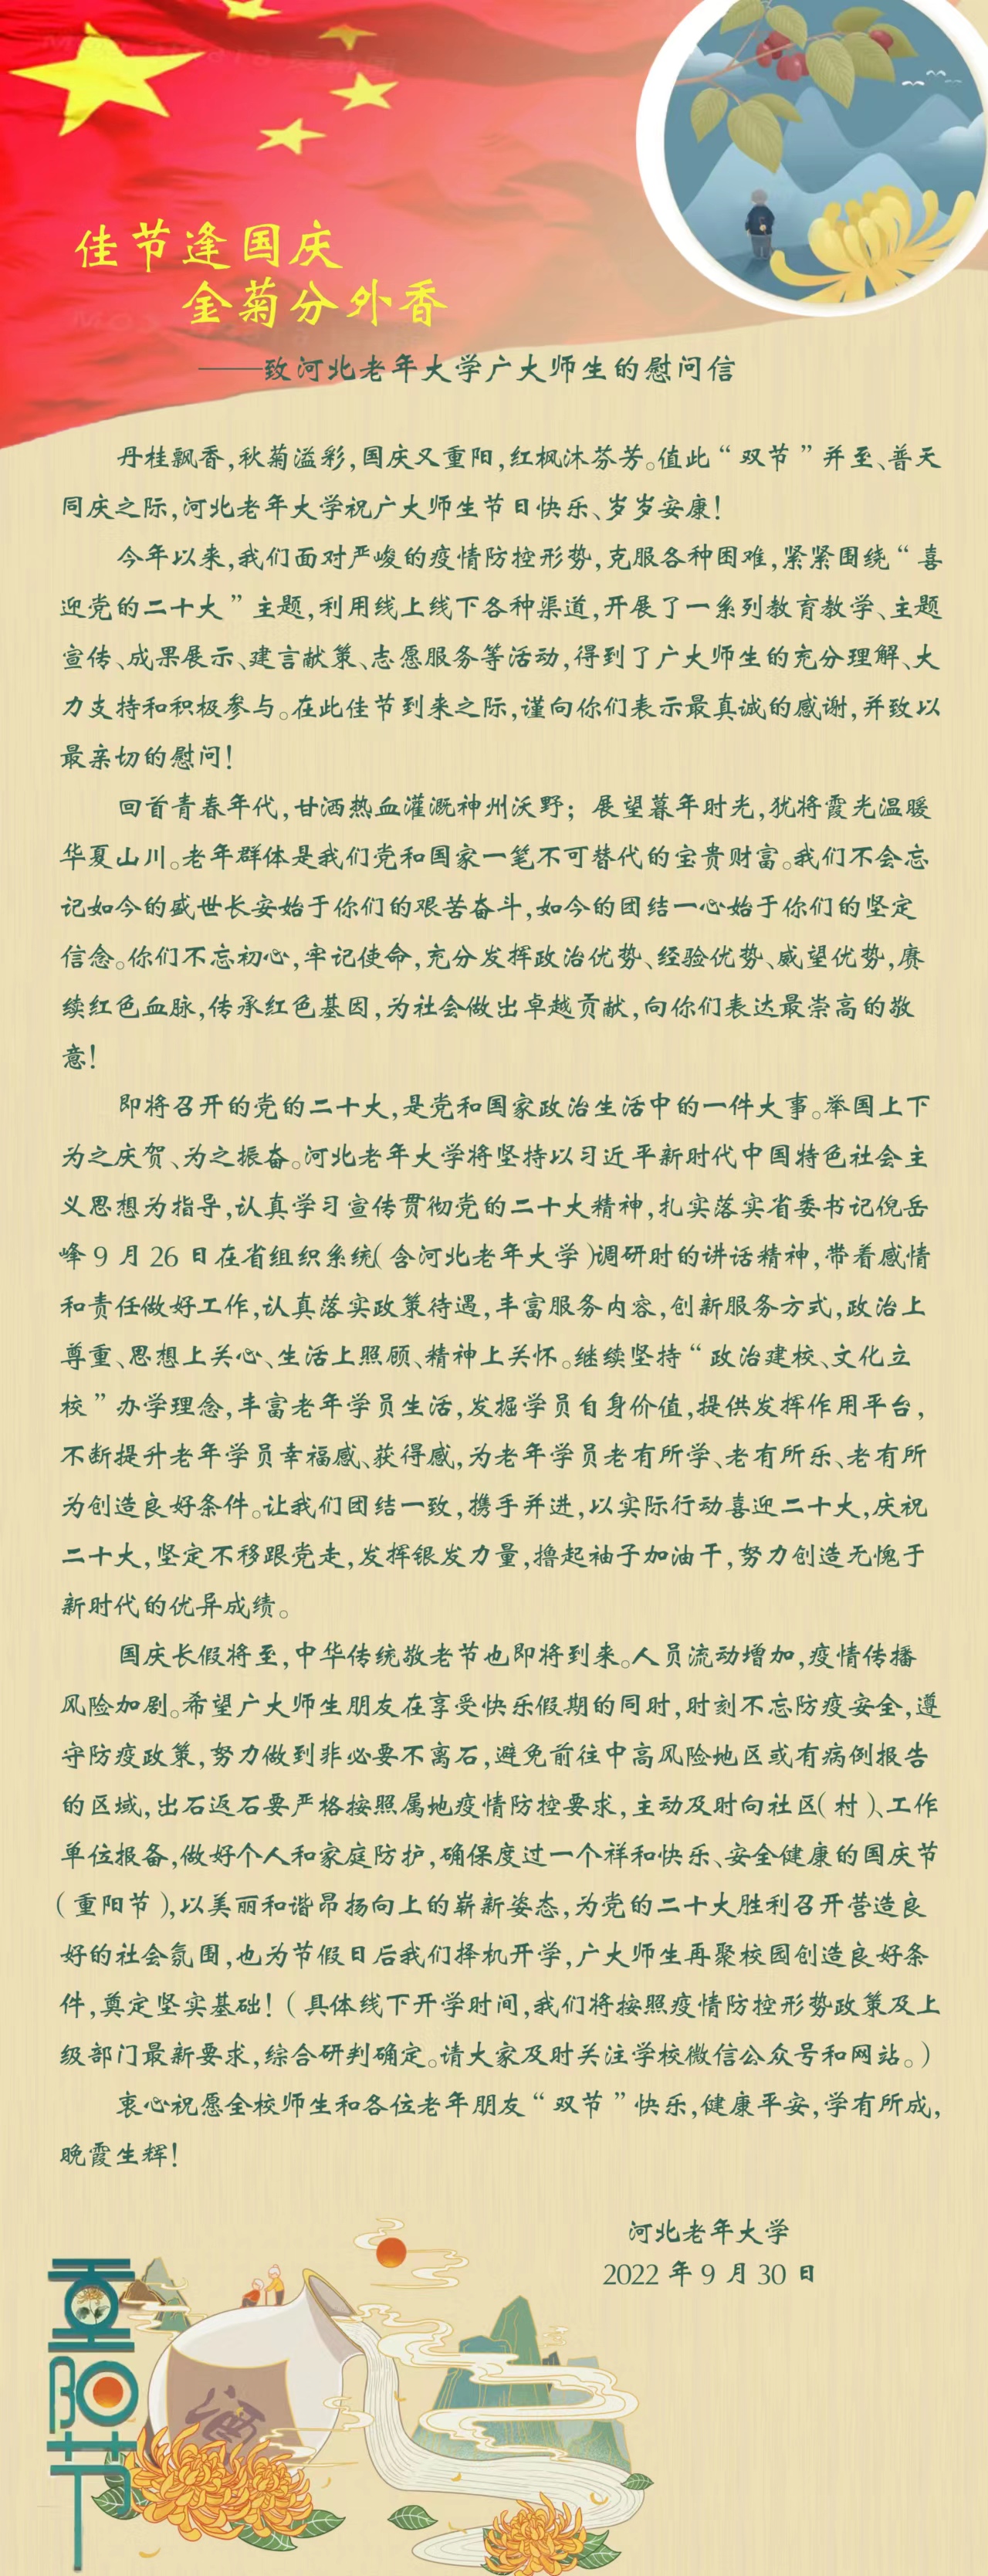 佳节逢国庆
金菊分外香
——致河北老年大学广大师生的慰问信
丹桂飘香,秋菊溢彩,国庆又重阳,红枫沐芬芳。值此“双节”并至、普天
同庆之际,河北老年大学祝广大师生节日快乐、岁岁安康!
今年以来,我们面对严峻的疫情防控形势,克服各种困难,紧紧围绕“喜
迎党的二十大”主题,利用线上线下各种渠道,开展了一系列教育教学、主题
宣传、成果展示、建言献策、志愿服务等活动,得到了广大师生的充分理解、大
力支持和积极参与。在此佳节到来之际,谨向你们表示最真诚的感谢,并致以
最亲切的慰问!
回首青春年代,甘洒热血灌溉神州沃野;展望暮年时光,犹将霞光温暖
华夏山川。老年群体是我们党和国家一笔不可替代的宝贵财富。我们不会忘
记如今的盛世长安始于你们的艰苦奋斗,如今的团结一心始于你们的坚定
信念。你们不忘初心,牢记使命,充分发挥政治优势、经验优势、威望优势,赓
续红色血脉,传承红色基因,为社会做出卓越贡献,向你们表达最崇高的敬
意!
即将召开的党的二十大,是党和国家政治生活中的一件大事。举国上下
为之庆贺、为之振奋。河北老年大学将坚持以习近平新时代中国特色社会主
义思想为指导,认真学习宣传贯彻党的二十大精神,扎实落实省委书记倪岳
峰9月26日在省组织系统(含河北老年大学)调研时的讲话精神,带着感情
和责任做好工作,认真落实政策待遇,丰富服务内容,创新服务方式,政治上
尊重、思想上关心、生活上照顾、精神上关怀。继续坚持“政治建校、文化立
校”办学理念,丰富老年学员生活,发掘学员自身价值,提供发挥作用平台,
不断提升老年学员幸福感、获得感,为老年学员老有所学、老有所乐、老有所
为创造良好条件。让我们团结一致,携手并进,以实际行动喜迎二十大,庆祝
二十大,坚定不移跟党走,发挥银发力量,撸起袖子加油干,努力创造无愧于
新时代的优异成绩。
国庆长假将至,中华传统敬老节也即将到来。人员流动增加,疫情传播
风险加剧。希望广大师生朋友在享受快乐假期的同时,时刻不忘防疫安全,遵
守防疫政策,努力做到非必要不离石,避免前往中高风险地区或有病例报告
的区域,出石返石要严格按照属地疫情防控要求,主动及时向社区(村)、工作
单位报备,做好个人和家庭防护,确保度过一个祥和快乐、安全健康的国庆节
(重阳节),以美丽和谐昂扬向上的崭新姿态,为党的二十大胜利召开营造良
好的社会氛围,也为节假日后我们择机开学,广大师生再聚校园创造良好条
件,奠定坚实基础!(具体线下开学时间,我们将按照疫情防控形势政策及上
级部门最新要求,综合研判确定。请大家及时关注学校微信公众号和网站。)
衷心祝愿全校师生和各位老年朋友“双节”快乐,健康平安,学有所成,
晚霞生辉!
河北老年大学
2022年9月30日
重阳节
酒